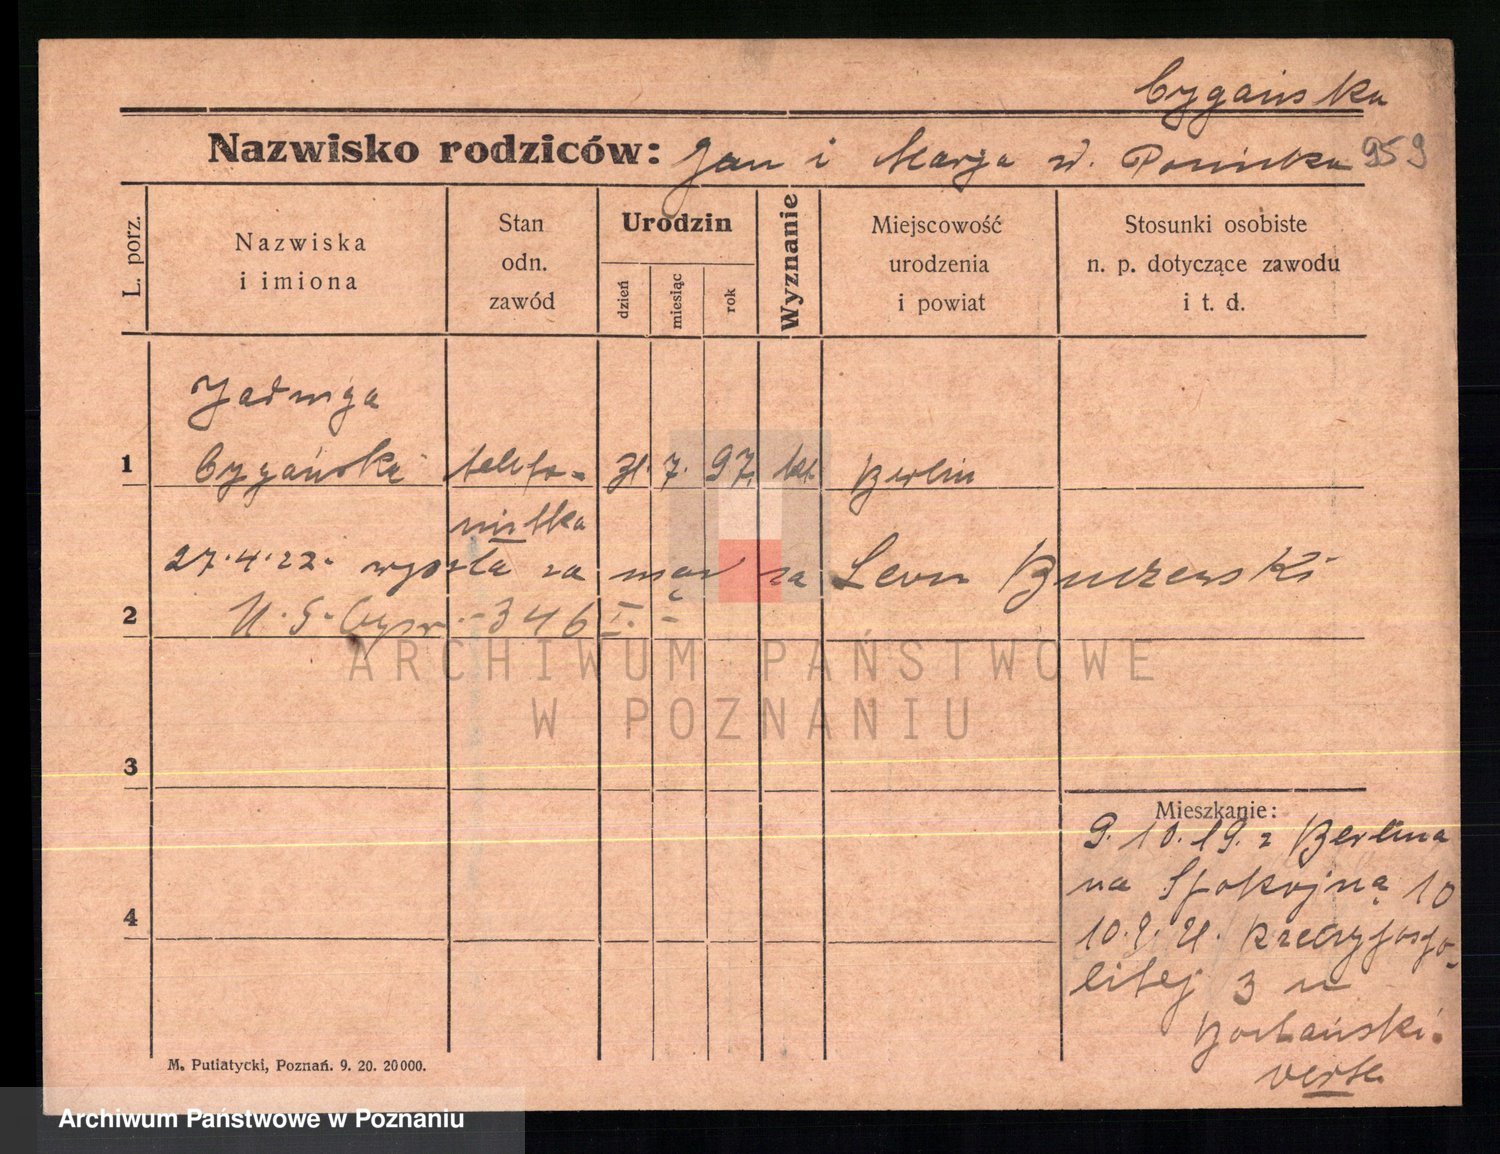 Cygańska
Nazwisko rodziców: Jan i Marja w. Ponińska 959
L. porz.
Nazwiska
i imiona
Stan
odn.
zawód
Urodzin
dzień
miesiąc
rok
Wyznanie
Miejscowość
urodzenia
i powiat
Stosunki osobiste
n. p. dotyczące zawodu
i t. d.
Jadwiga
1 Cygańska telefo- 31. 7. 97. kt. Berlin
nistka
27.4.22. wyszła za mąż za Leon Buczewski
2 346 I.
ARCHIWUM PAŃSTWOWE
W POZNANIU
3
Mieszkanie:
9. 10. 19. z Berlina
na Spokojną 10
4
10. 21. Rzeczypospo-
litej 3 u
verte
M. Putiatycki, Poznań. 9. 20. 20000.
Archiwum Państwowe w Poznaniu